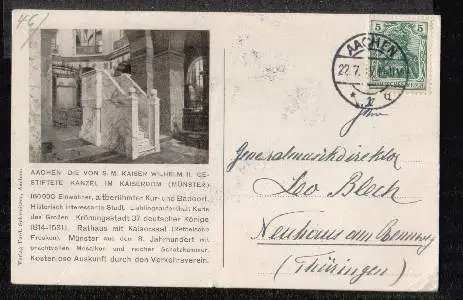 AACHEN DIE VON S. M. KAISER WILHELM II. GE-
STIFTETE KANZEL IM KAISERDOM (MÜNSTER)
160000 Einwohner, altberühmter Kur- und Badeort.
Historisch interessante Stadt. Lieblingsaufenthalt Karls
des Großen Krönungsstadt 37 deutscher Könige
(814-1531). Rathaus mit Kaisersaal (Rethelsche
Fresken). Münster aus dem 8. Jahrhundert mit
prachtvollen Mosaiken und reicher Schatzkammer.
Kostenlose Auskunft durch den Verkehrsverein.
AACHEN
22.7.
5
5
Generalmusikdirektor
Leo Blech
Neuhaus am Rennweg
(Thüringen)